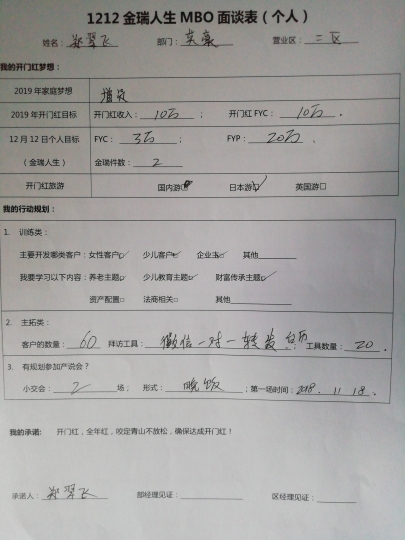 1212金瑞人生MBO面谈表（个人）
姓名：郑翠飞 部门：英豪 营业区：二区
我的开门红梦想：
2019年家庭梦想 增员
2019年开门红目标 开门红收入：10万； 开门红FYC：10万。
12月12日个人目标 FYC：3万； FYP：20万。
（金瑞人生） 金瑞件数：2
开门红旅游 国内游□ 日本游☑ 英国游□
我的行动规划：
1. 训练类：
主要开发哪类客户：女性客户☑ 少儿客户☑ 企业主☑ 其他
我要学习以下内容：养老主题☑ 少儿教育主题☑ 财富传承主题☑
资产配置□ 法商相关□ 其他
2. 主拓类：
客户的数量：60 拜访工具：微信一对一转发 台历 工具数量：20。
3. 有规划参加产说会？
小交会：2 场； 形式：晚饭；第一场时间：2018.11.18.
我的承诺： 开门红，全年红，咬定青山不放松，确保达成开门红！
承诺人：郑翠飞 部经理见证： 区经理见证：